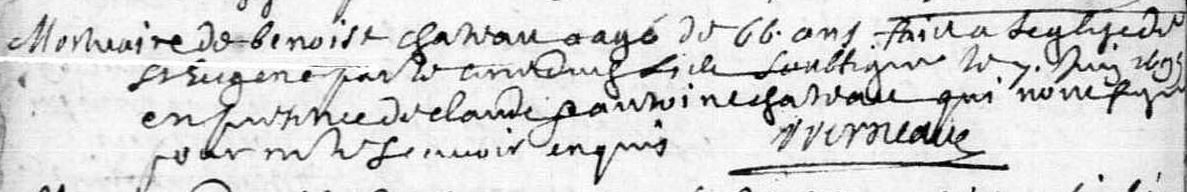 Mortuaire de benoist chateau aagé de 66. ans faict a leglise de
St Eugene par le curé dud lieu soubsigné le 7. Juin 1695
en presence de claude & antoine chateau qui n'ont signé
pour ne le scavoir enquis